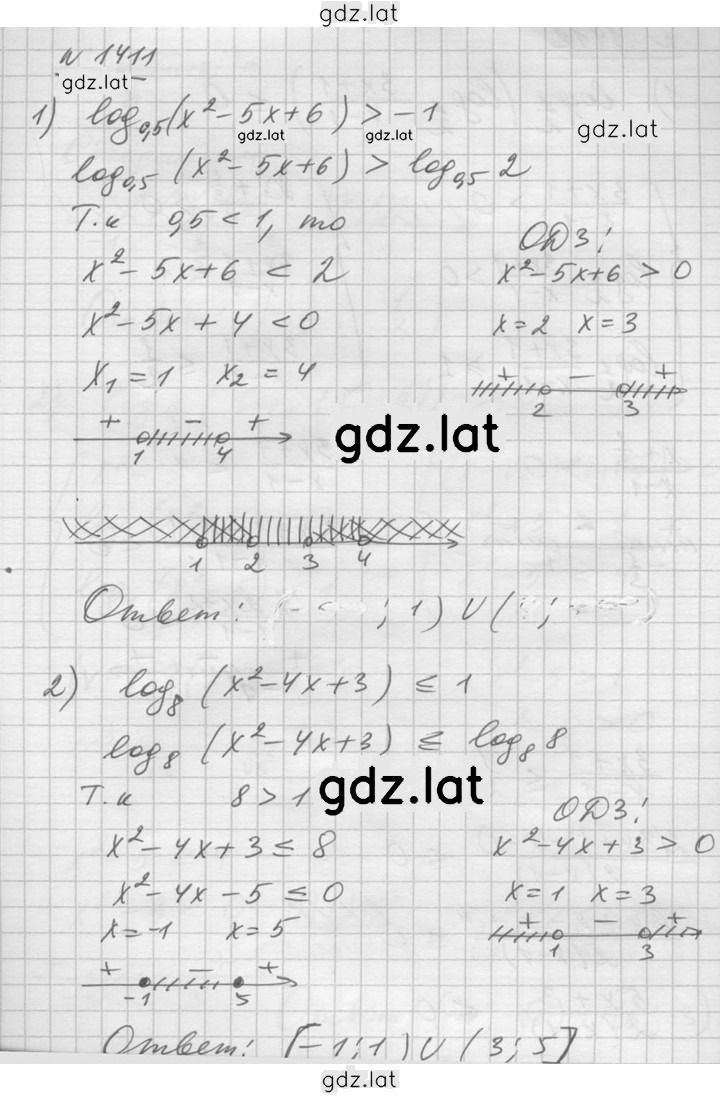 gdz.lat
N 1411
gdz.lat
1) log0,5(x² - 5x + 6) > -1
gdz.lat gdz.lat gdz.lat
log0,5 (x² - 5x + 6) > log0,5 2
Т.к 0,5 < 1, то
ОДЗ:
x² - 5x + 6 < 2
x² - 5x + 6 > 0
x² - 5x + 4 < 0
x = 2 x = 3
x₁ = 1 x₂ = 4
+ - +
2 3
+ - +
1 4
gdz.lat
1 2 3 4
Ответ: ; 1) U ( ;
2) log8 (x² - 4x + 3) ≤ 1
log8 (x² - 4x + 3) ≤ log8 8
Т.к 8 > 1
gdz.lat
ОДЗ:
x² - 4x + 3 ≤ 8
x² - 4x + 3 > 0
x² - 4x - 5 ≤ 0
x = 1 x = 3
x = -1 x = 5
+ - +
1 3
+ - +
-1 5
Ответ: [-1; 1) U (3; 5]
gdz.lat